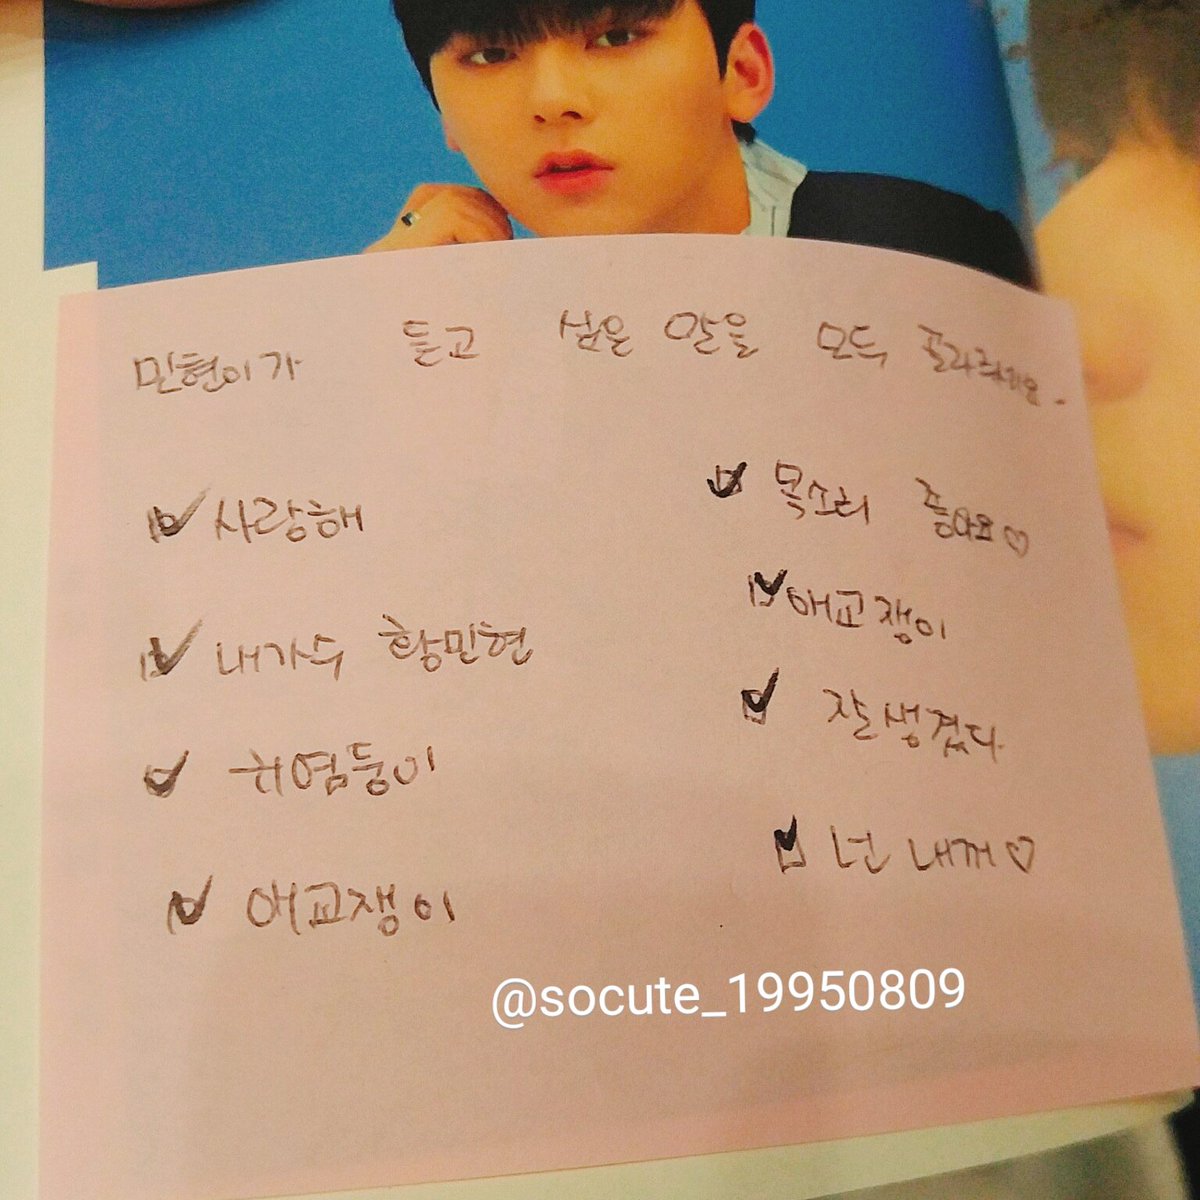 민현이가 듣고 싶은 말을 모두 골라주세요.
사랑해
목소리 좋아요♡
내가수 황민현
애교쟁이
귀염둥이
잘생겼다
애교쟁이
넌 내꺼♡
@socute_19950809